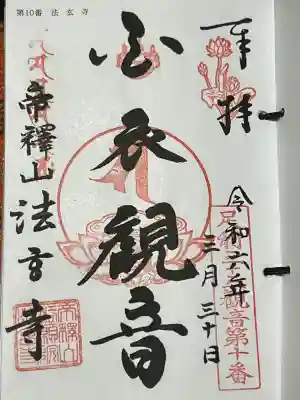 第10番 法玄寺
奉拝
令和六年
三月三十日
足利坂東観音第十番
白衣観音
帝釋山法玄寺